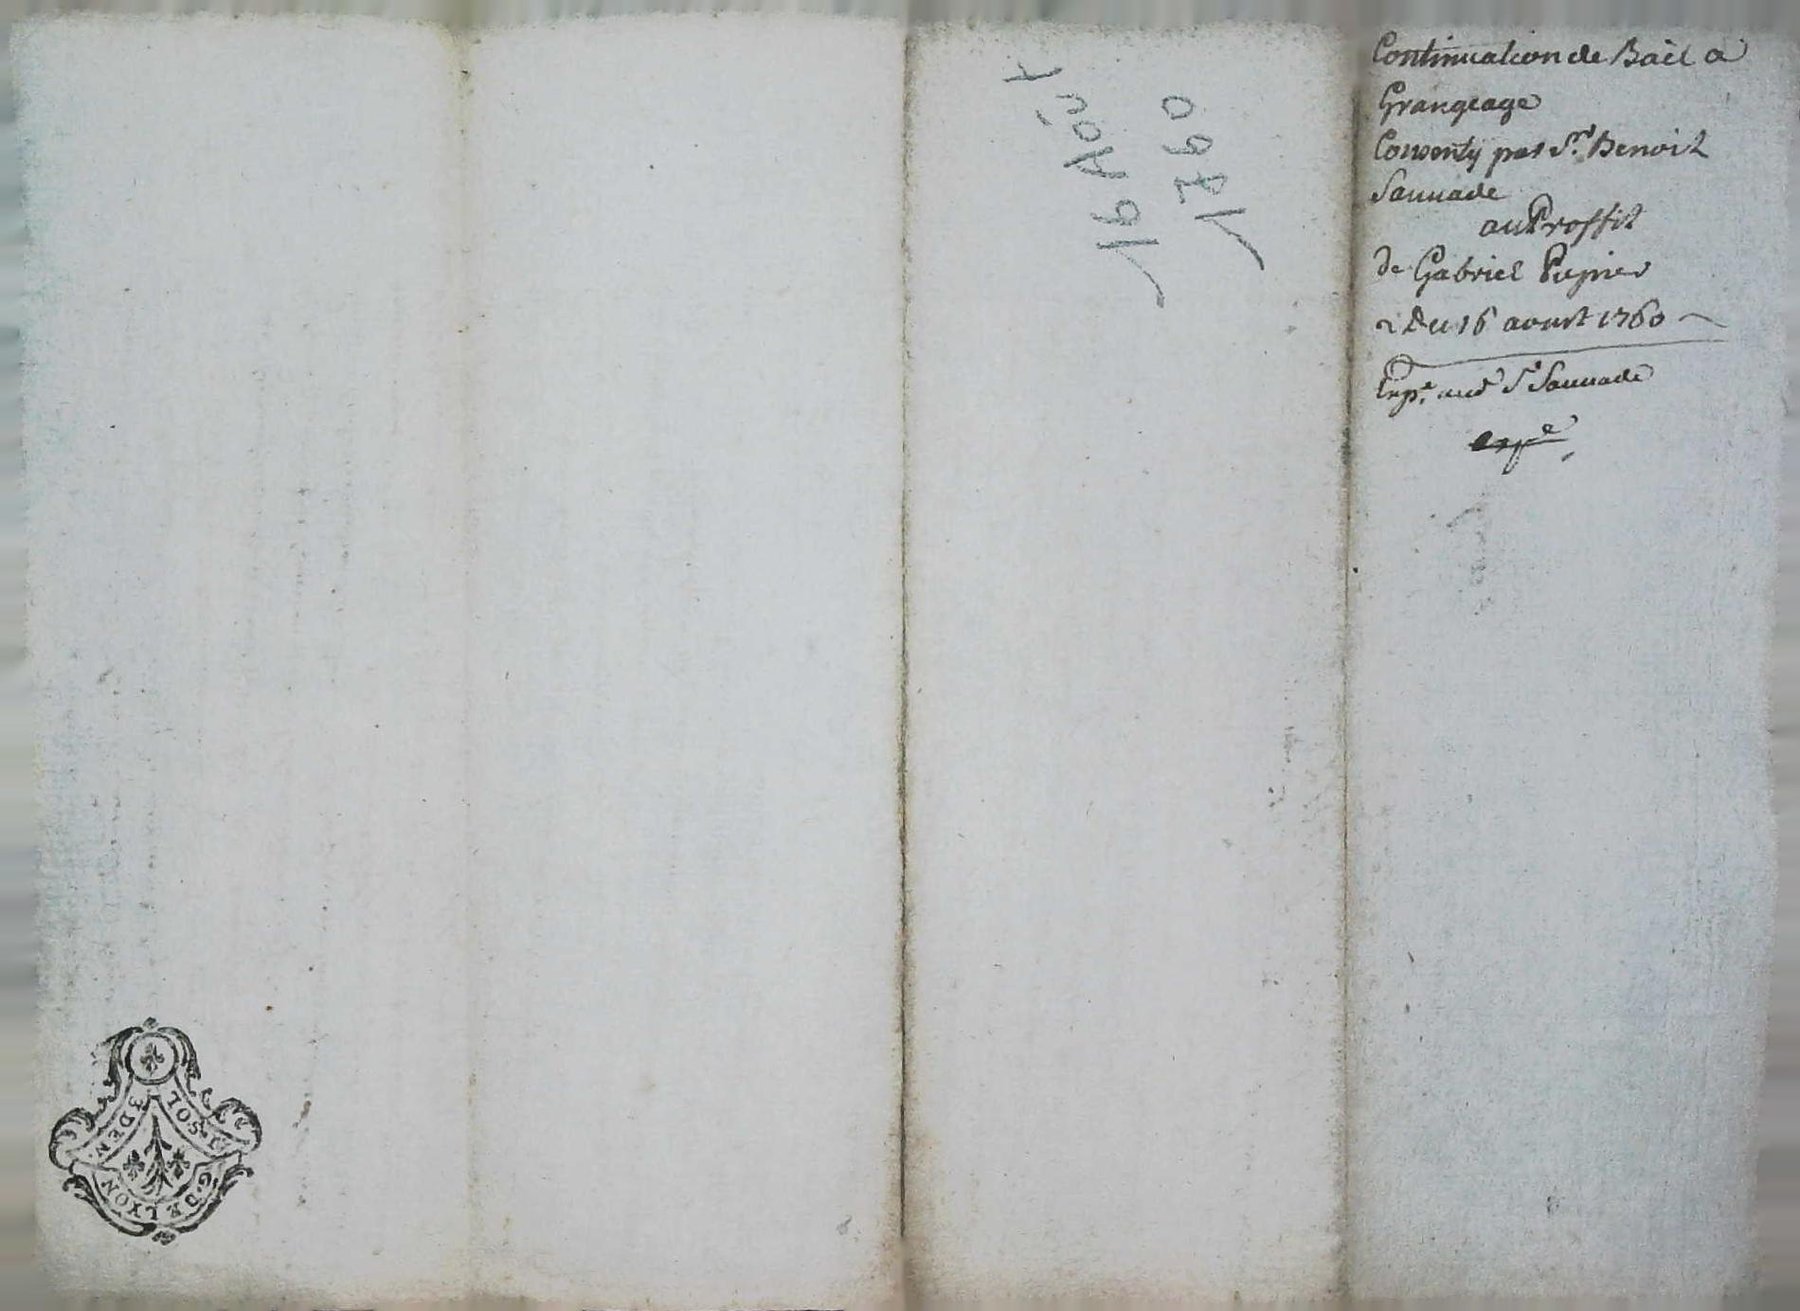 Continuation de Bail a
Grangeage
Consenty par Sr. Benoit
Sauuade
au Proffit
de Gabriel Pupier
Du 16 aoust 1760
Expe. aud Sr Sauuade
expe
16 Août
1760
1 SOL 3 DEN
G DE LYON